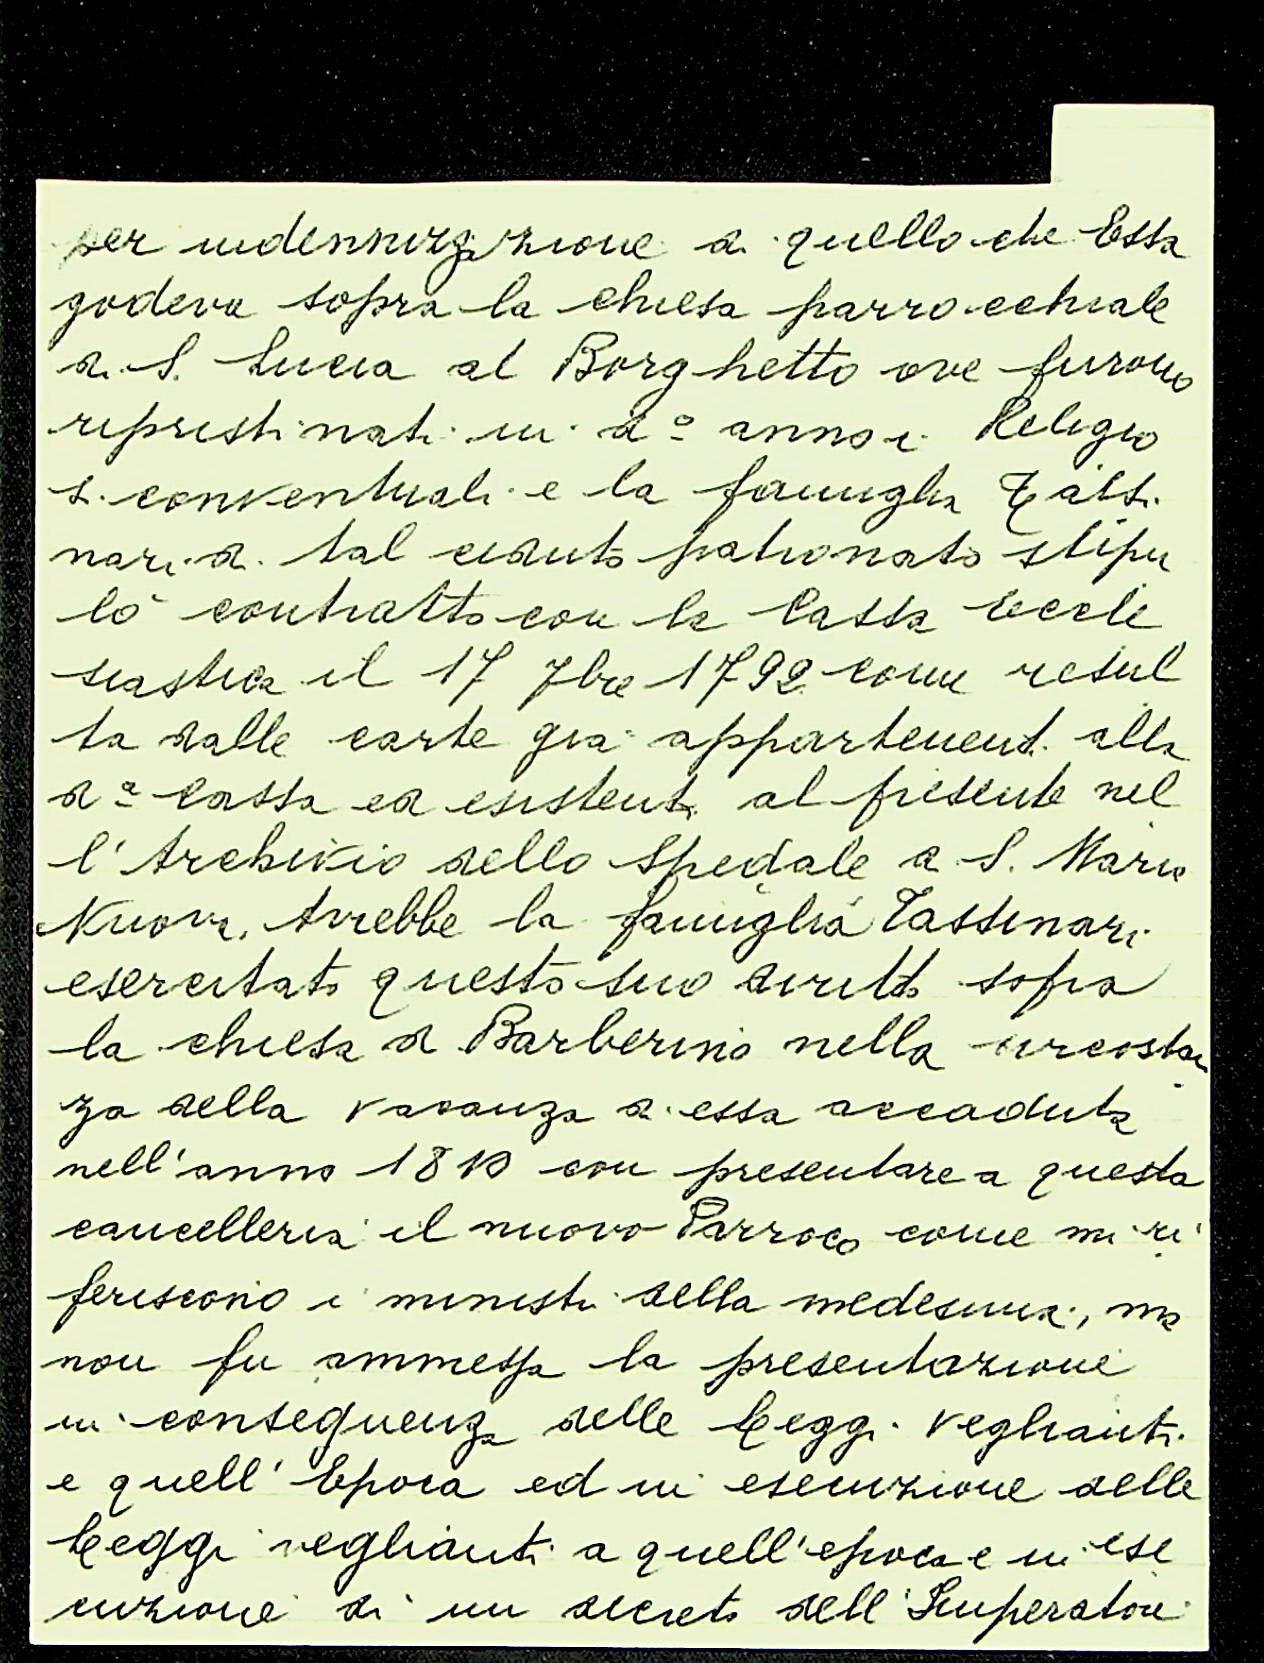 per indennizzazione di quello che Essa
godeva sopra la chiesa parrocchiale
di S. Lucia al Borghetto ove furono
ripristinati in dº anno i Religio
si conventuali e la famiglia Tassi
nari di tal ceduto patronato stipu
lò contratto con la Cassa Eccle
siastica il 17 7bre 1792 come resul
ta dalle carte già appartenenti alla
dª Cassa ed esistenti al presente nel
l'Archivio dello Spedale a S. Maria
Nuova. Avrebbe la famiglia Tassinari
esercitato questo suo diritto sopra
la chiesa di Barberino nella circostan
za della vacanza di essa accaduta
nell'anno 1810 con presentare a questa
cancelleria il nuovo Parroco come mi ri
feriscono i ministri della medesima, ma
non fu ammessa la presentazione
in conseguenza delle Leggi veglianti
e quell'Epoca ed in esecuzione delle
Leggi veglianti a quell'epoca e in ese
cuzione di un decreto dell'Imperatore